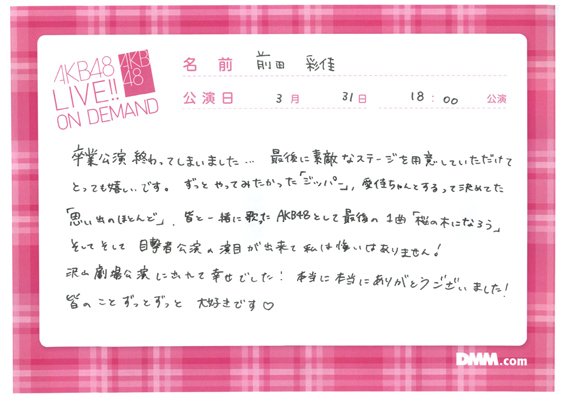 AKB48
LIVE!!
ON DEMAND
AKB
48
名前 前田 彩佳
公演日 3月 31日 18:00 公演
卒業公演終わってしまいました… 最後に素敵なステージを用意していただけて
とっても嬉しいです。ずっとやってみたかった「ジッパー」、愛佳ちゃんとするって決めてた
「思い出のほとんど」、皆と一緒に歌えたAKB48として最後の1曲「桜の木になろう」
そしてそして 目撃者公演の演目が出来て私は悔いはありません!
沢山劇場公演に出れて幸せでした! 本当に本当にありがとうございました!
皆のことずっとずっと 大好きです♡
DMM.com